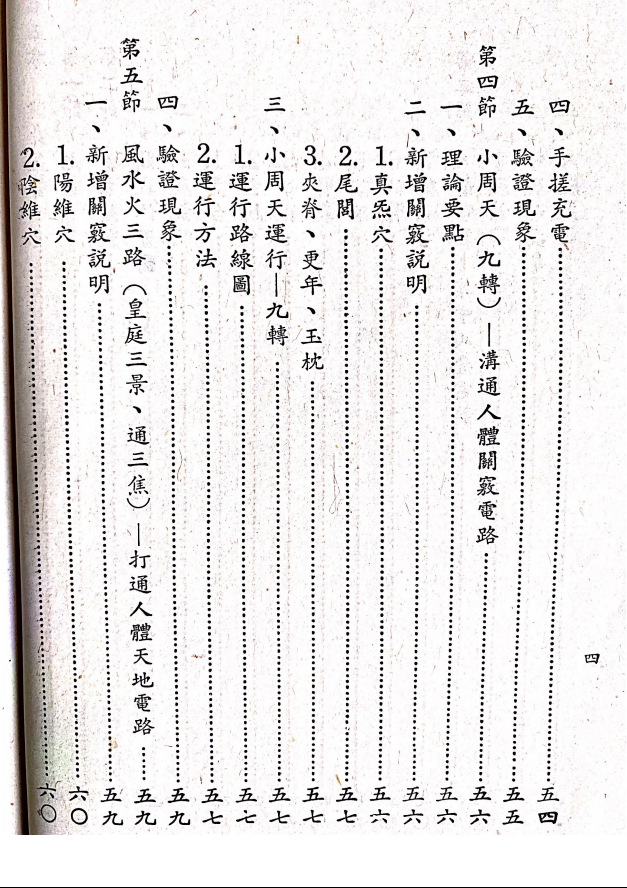 四
四、手搓充電……五四
五、驗證現象……五五
第四節　小周天（九轉）—溝通人體關竅電路……五六
一、理論要點……五六
二、新增關竅説明……五六
1.真炁穴……五六
2.尾閭……五七
3.夾脊、更年、玉枕……五七
三、小周天運行—九轉……五七
1.運行路線圖……五七
2.運行方法……五七
四、驗證現象……五九
第五節　風水火三路（皇庭三景、通三焦）—打通人體天地電路……五九
一、新增關竅説明……五九
1.陽維穴……六〇
2.陰維穴……六〇